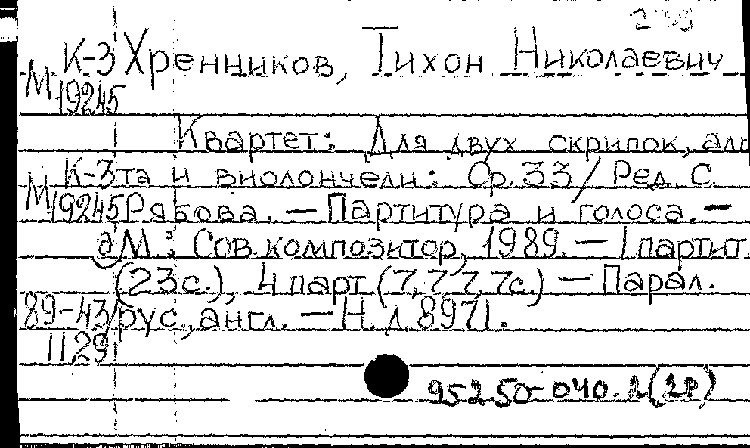 К-3 Хренников, Тихон Николаевич
М 19245
Квартет: Для двух скрипок, аль
К-3 та и виолончели: Ор. 33 / Ред. С.
М 19245 Рябова. — Партитура и голоса. —
д М.: Сов. композитор, 1989. — 1 партит.
(23 с.), 4 парт (7,7,7,7с.) — Парал.
89-43 рус., англ. — Н. д. 8971.
1129
95250-040. 2(2р)